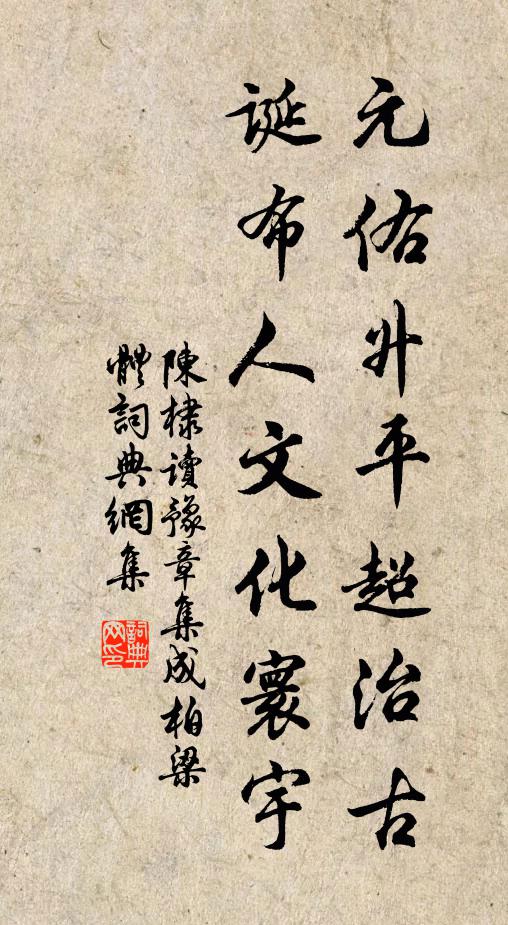 元佑升平超治古
誕布人文化寰宇
陳棣讀豫章集成柏梁
體詞典網集
詞典
网印